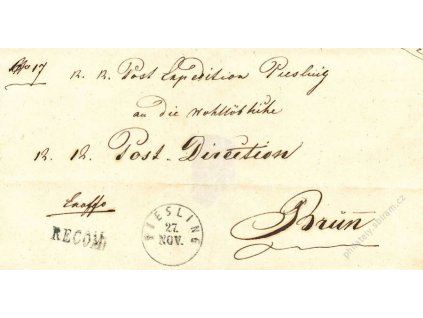 No 17
K. K. Post Expedition Piesling
an die wohllöbliche
K. K. Post Direction
Exoffo
RECOM
PIESLING
27.
NOV.
Brün
philately.sbiram.cz